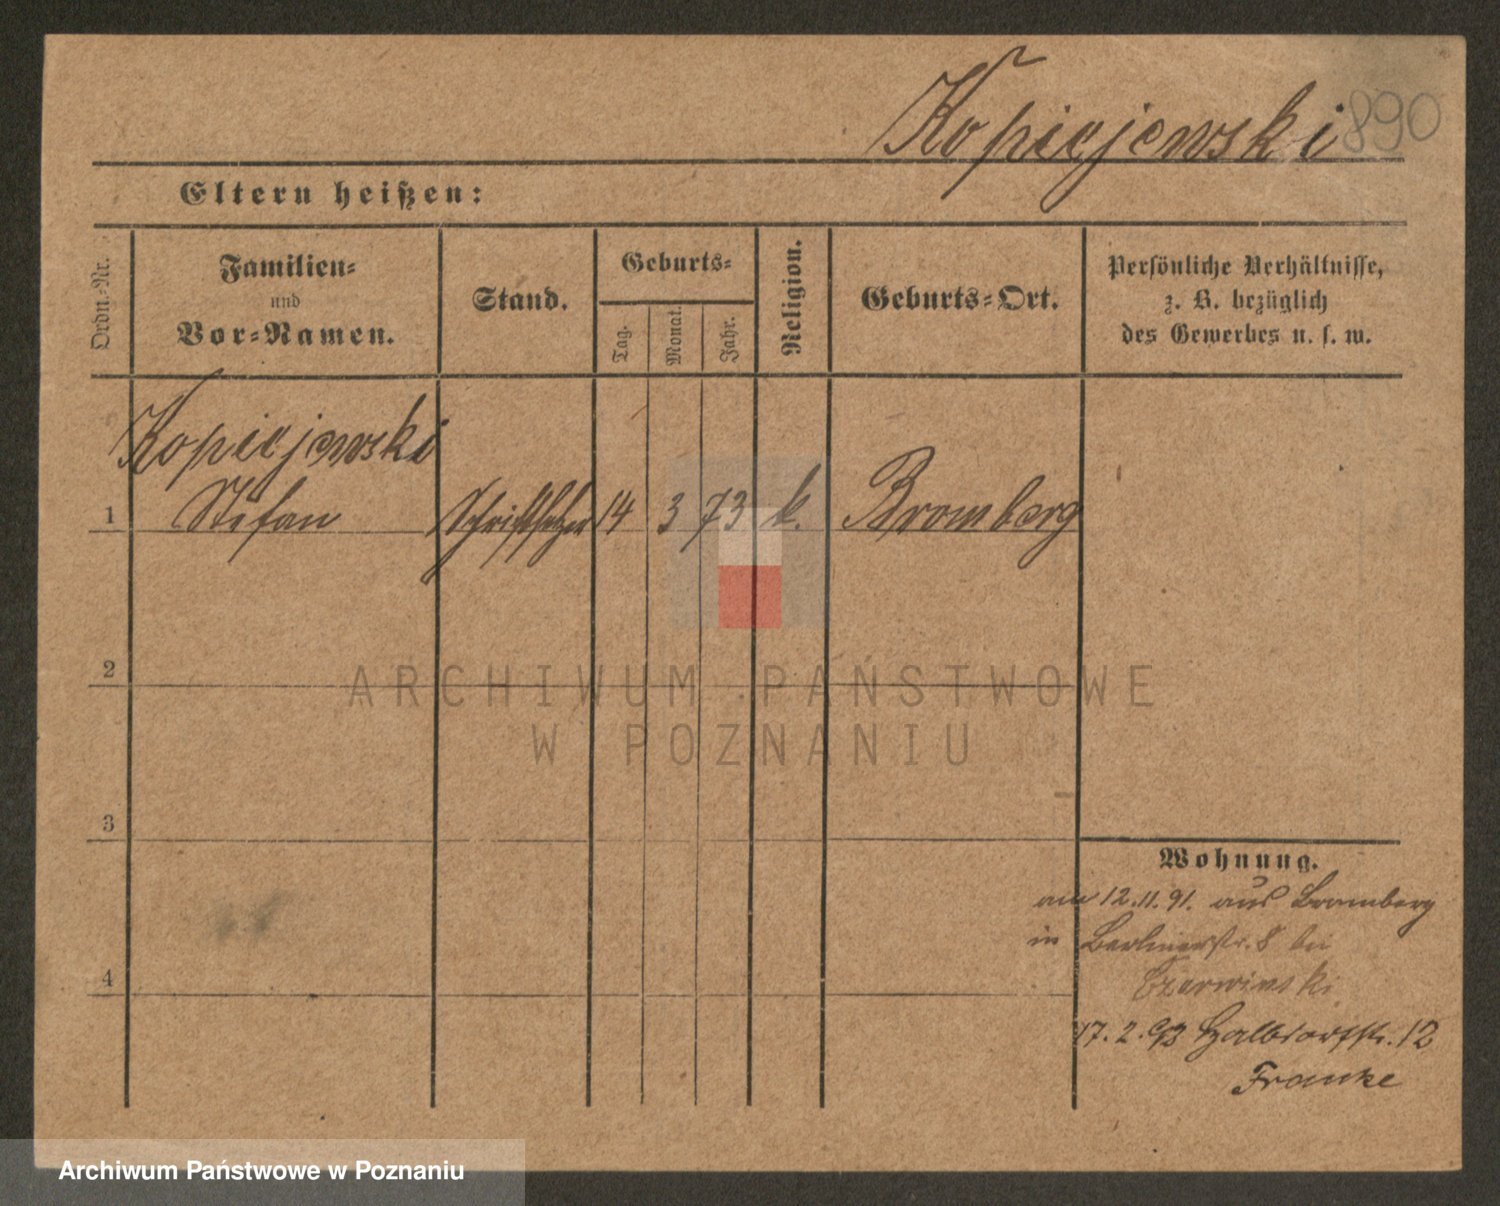 Kopicajewski 890
Eltern heißen:
Ordn.-Nr.
Familien-
und
Vor-Namen.
Stand.
Geburts-
Tag.
Monat.
Jahr.
Religion.
Geburts-Ort.
Persönliche Verhältnisse,
z. B. bezüglich
des Gewerbes u. s. w.
Stefan
1 Schriftsetzer 14 3 73 k. Bromberg
2
3
4
Wohnung.
am 12.11.91. aus Bromberg
in Berlinerstr. 8 bei
Czarwinski
17. 2. 93 Halbdorfstr. 12
Franke
ARCHIWUM PAŃSTWOWE
W POZNANIU
Archiwum Państwowe w Poznaniu